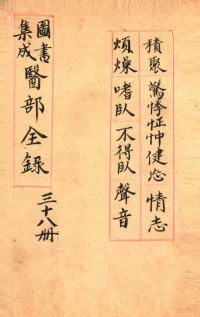 積聚 驚悸怔忡健忘 情志
煩燥 嗜臥 不得臥 聲音
圖書集成醫部全錄
三十八册